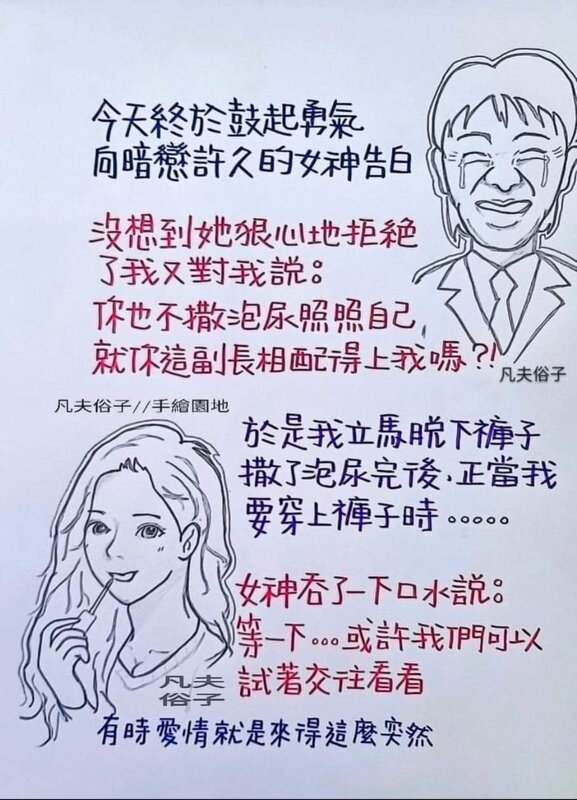 今天終於鼓起勇氣
向暗戀許久的女神告白
沒想到她狠心地拒絕
了我又對我說：
你也不撒泡尿照照自己，
就你這副長相配得上我嗎？！
凡夫俗子
凡夫俗子//手繪園地
於是我立馬脫下褲子
撒了泡尿完後，正當我
要穿上褲子時。。。。。
女神吞了一下口水說：
等一下。。。或許我們可以
試著交往看看
凡夫
俗子
有時愛情就是來得這麼突然